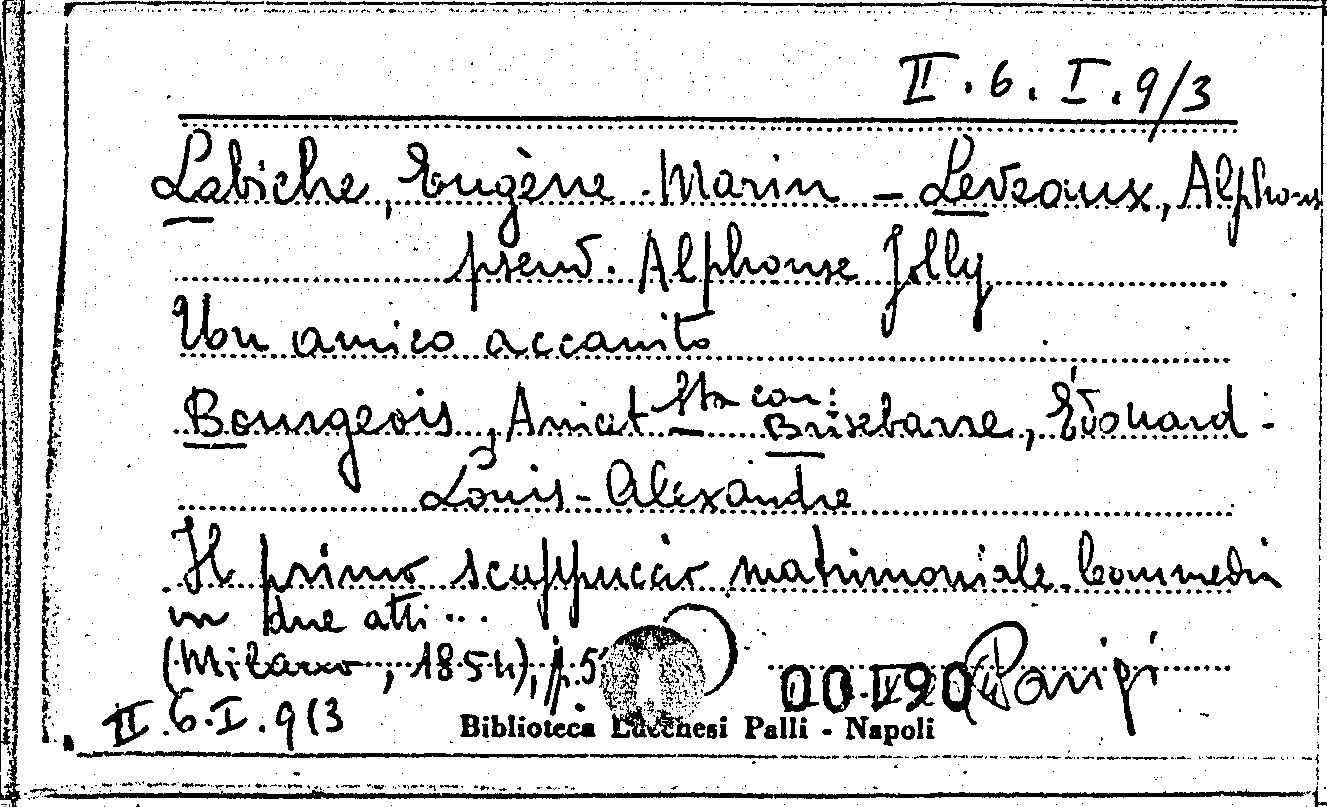 II.6.I.9/3
Labiche, Eugène-Marin - Leveaux, Alphons
pseud. Alphonse Jolly
Un amico accanito
Bourgeois, Anicet Sta con: Brisebarre, Édouard-
Louis-Alexandre
Il primo scappuccio matrimoniale. Commedia
in due atti...
(Milano, 1854), p. 5
Parigi
II.6.I.9/3
Biblioteca Lucchesi Palli - Napoli